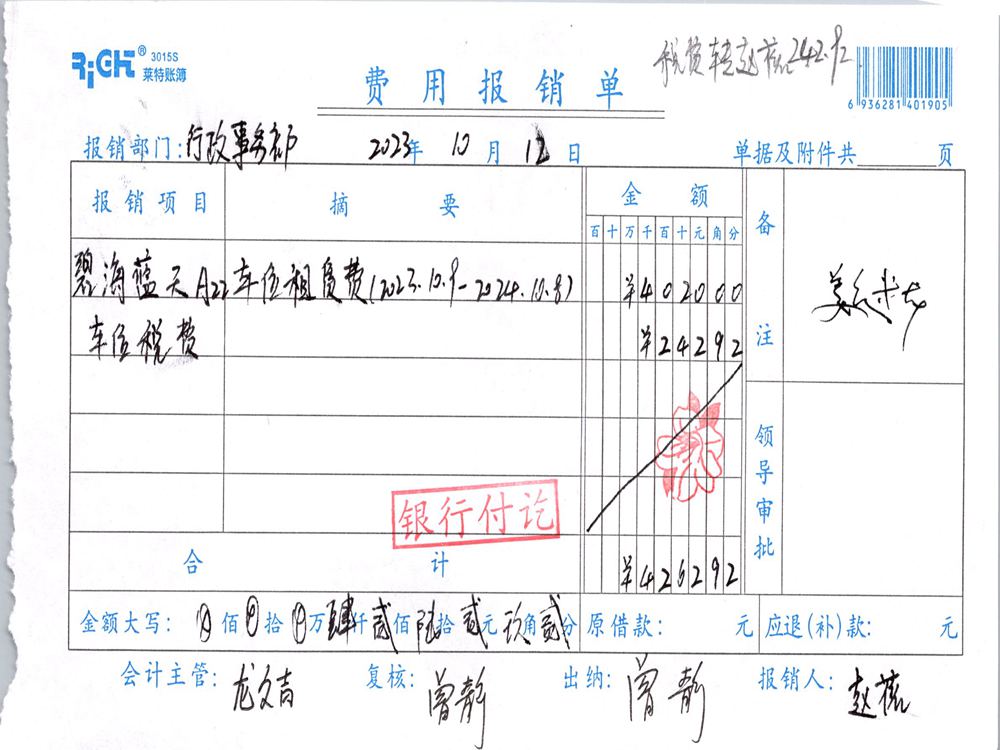 RiCH® 3015S
莱特账簿
税费转赵 242.92
费用报销单
6 936281 401905
报销部门:行政事务部 2023年 10月 12日 单据及附件共 页
报销项目 摘要 金额 备注
百十万千百十元角分
碧海蓝天A22车位租赁费(2023.10.9-2024.10.8) ¥402000
车位税费 ¥24292
领导审批
银行付讫
合计 ¥426292
金额大写: 佰 拾 万肆仟贰佰陆拾贰元玖角贰分 原借款: 元 应退(补)款: 元
会计主管:龙文吉 复核:曾静 出纳:曾静 报销人:赵